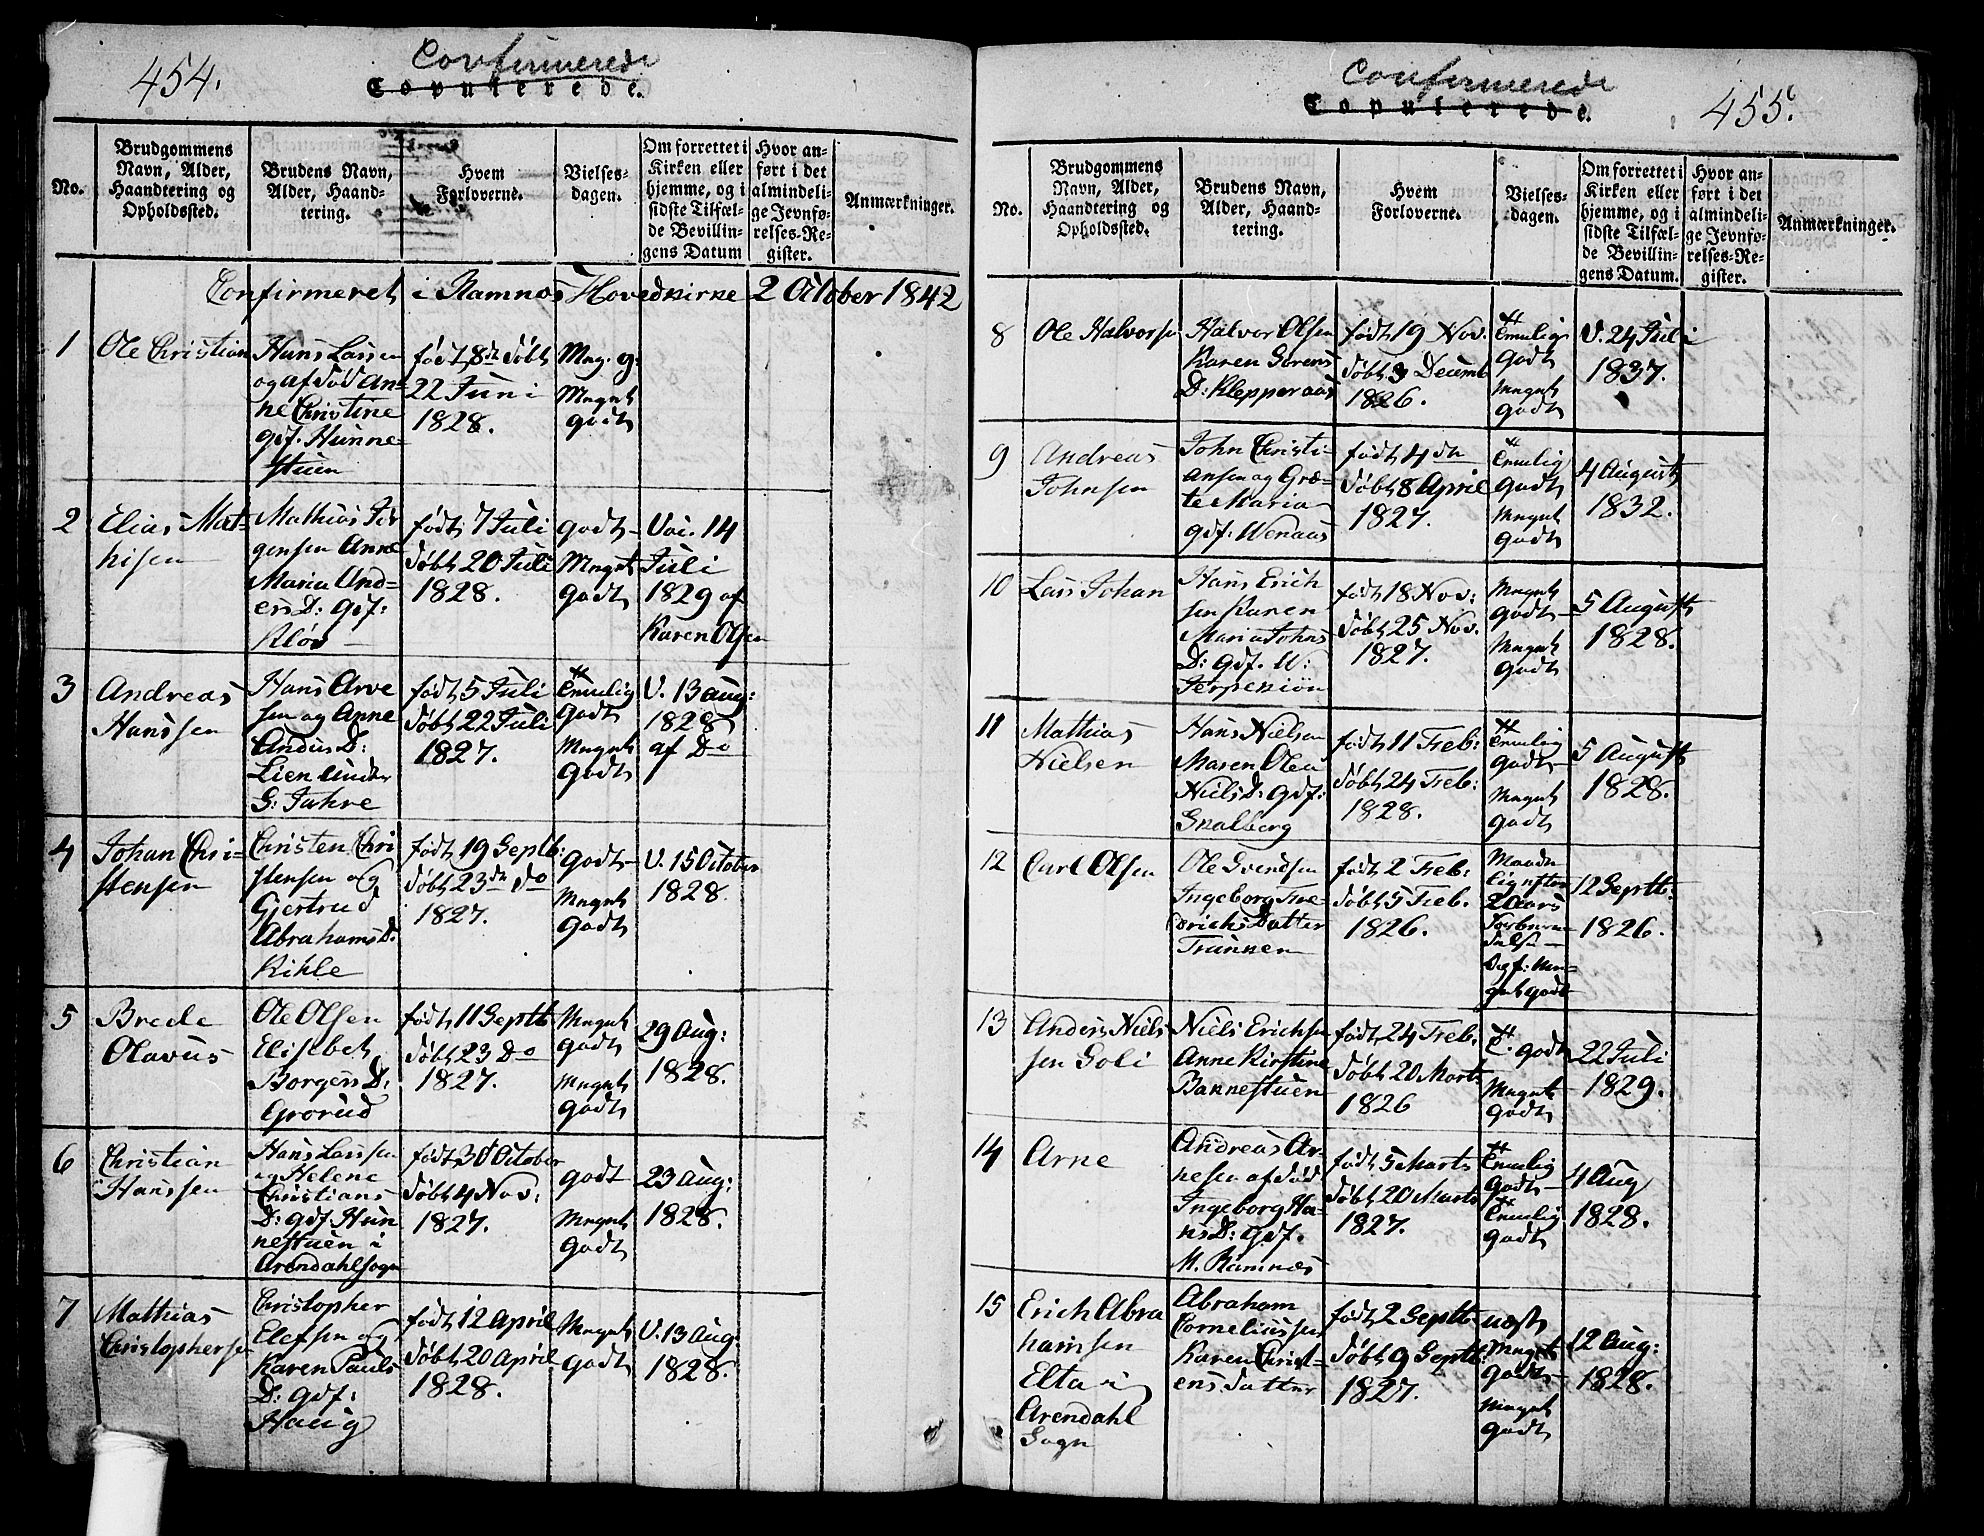 454.
Confirmerede
Copulerede.
No.
Brudgommens
Navn, Alder,
Haandtering og
Opholdssted.
Brudens Navn,
Alder, Haand-
tering.
Hvem
Forloverne.
Vielses-
dagen.
Om forrettet i
Kirken eller
hjemme, og i
sidste Tilfæl-
de Bevillin-
gens Datum
Hvor an-
ført i det
almindeli-
ge Jevnfø-
relses-Re-
gister.
Anmærkninger.
Confirmeret i Ramnes Hovedkirke 2 October 1842
1
Ole Christian
Hans Larsen
og afdød An-
ne Christine
gdf. Hunne-
stuen
født 8de døbt
22 Juni
1828.
Mag. g:
Meget
godt
2
Elias Mat-
hisen
Mathias Jør
gensen Anne
Maria And-
ers D: gdf:
Kløv
født 7 Juli
døbt 20 Juli
1828.
godt
Meget
godt
Vac. 14
Juli
1829 af
Karen Olsen
3
Andreas
Hanssen
Hans Arve
sen og Anne
Anders D:
Lien under
S: Fahre
født 5 Juli
døbt 22 Juli
1827.
temelig
godt
Meget
godt
V. 13 Aug:
1828
af Do
4
Johan Chri-
stensen
Christen Chri
stensen og
Gjertrud
Abrahams D.
Kihle
født 19 Septb:
døbt 23de do
1827.
godt
Meget
godt
V. 15 October
1828.
5
Brede
Olavus
Ole Olsen
Elisebet
Borgers D:
Grorud
født 11 Septb
døbt 23 Do
1827.
Meget
godt
Meget
godt
29 Aug:
1828.
6
Christian
Hanssen
Hans Larsen
og Helene
Christians
D: gdf Hun
nestuen i
Arendahl sogn
født 30 October
døbt 4 Nov:
1827.
godt
Meget
godt
23 Aug:
1828.
7
Mathias
Christophersen
Christopher
Elefsen og
Karen Pauls
D: gdf:
Haug
født 12 April
døbt 20 April
1828.
Meget
godt
V. 13 Aug:
1828.
Confirmerede
Copulerede.
455.
No.
Brudgommens
Navn, Alder,
Haandtering og
Opholdssted.
Brudens Navn,
Alder, Haand-
tering.
Hvem
Forloverne.
Vielses-
dagen.
Om forrettet i
Kirken eller
hjemme, og i
sidste Tilfæl-
de Bevillin-
gens Datum.
Hvor an-
ført i det
almindeli-
ge Jevnfø-
relses-Re-
gister.
Anmærkninger.
8
Ole Halvorsen
Halvor Olsen
Karen Sørens
D: Klepperaas
født 19 Nov.
døbt 3 Decemb
1826.
temelig
godt
Meget
godt
V. 24 Juli
1837.
9
Andreas
Johnsen
John Christi-
ansen og Græ-
te Maria
gdf: Wenaas
født 4 de
døbt 8 April
1827.
temelig
godt
Meget
godt
4 August
1832.
10
Lars Johan
Hans Erich
sen Karen
Maria Johns
D: gdf. W:
Jerpekiøn
født 18 Nov:
døbt 25 Nov.
1827.
Meget
godt
Meget
godt
5 August
1828.
11
Mathias
Nielsen
Hans Nielsen
Maren Olea
Niels D: gdf:
Skalberg
født 11 Feb:
døbt 24 Feb:
1828.
temelig
godt
Meget
godt
5 August
1828.
12
Carl Olsen
Ole Svendsen
Ingeborg Fre-
derichs Datter
Trunken
født 2 Feb:
døbt 5 Feb.
1826.
Maade
lig efter
2 Aars
Forberre
delse
Meget godt
12 Septb:
1826.
13
Anders Niels
sen Soli
Niels Erichsen
Anne Kirstine
Bakkestuen
født 24 Feb:
døbt 20 Marts
1826
t. godt
Meget
godt
22 Juli
1829.
14
Arne
Andreas Ar-
nesen af død
Ingeborg Ha-
ns D: gdf.
M. Ramnes
født 5 Marts
døbt 20 Marts
1827.
temelig
godt
temelig
godt
4 Aug
1828.
15
Erich Abra
hamsen
Elta i
Arendahl
Sogn
Abraham
Corneliussen
Karen Christ-
ens datter
født 2 Septb
døbt 9 Septb:
1827.
næst
Meget
godt
Meget
godt
12 Aug:
1828.